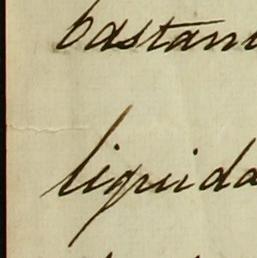 bastan
liquida